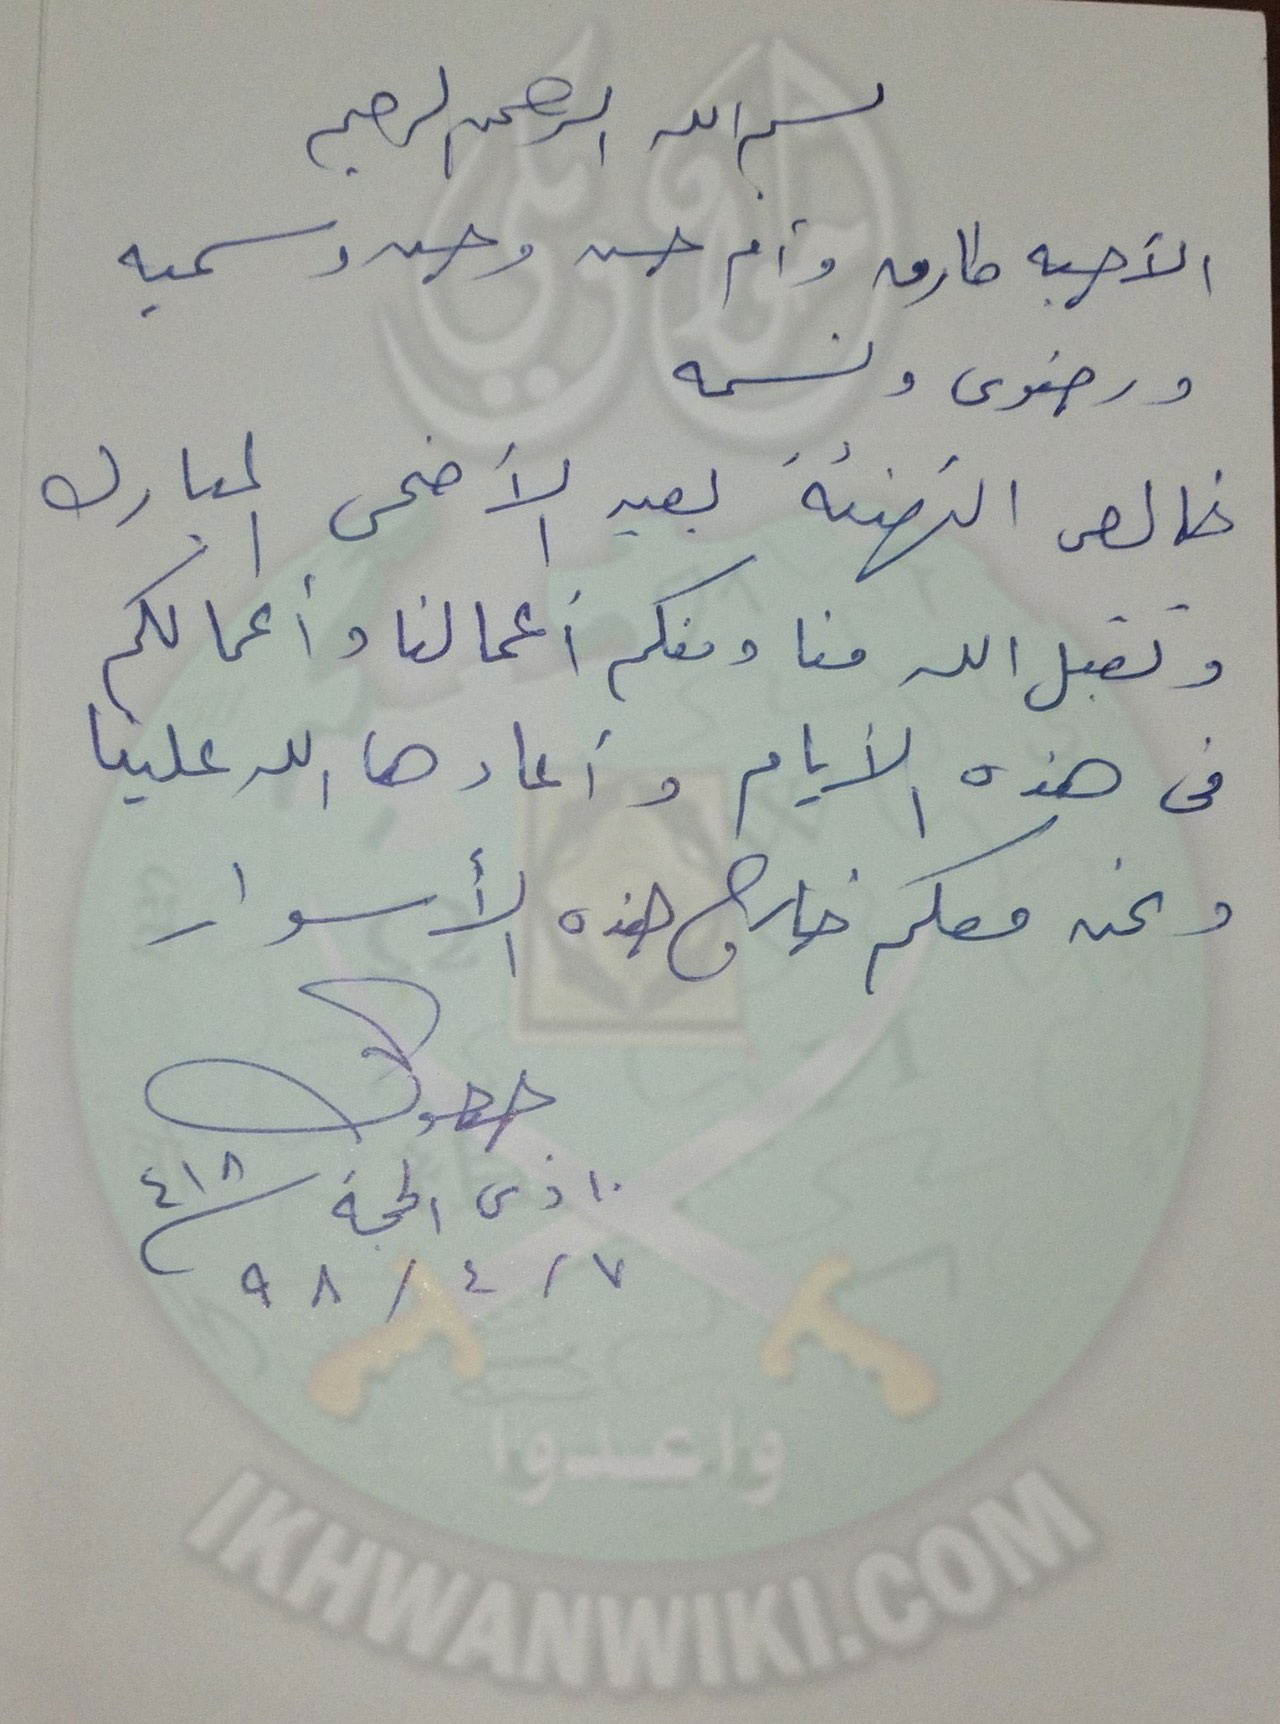 بسم الله الرحمن الرحيم
الأحبه طارق وأم حسن وحسن وسميه
ورضوى ونسمه
خالص التهنئة بعيد الأضحى المبارك
وتقبل الله منا ومنكم أعمالنا وأعمالكم
فى هذه الأيام وأعادها الله علينا
ونحن معكم خارج هذه الأسوار
١٠ ذى الحجة ٤١٨
٧ / ٤ / ٩٨
وأعدوا
IKHWANWIKI.COM